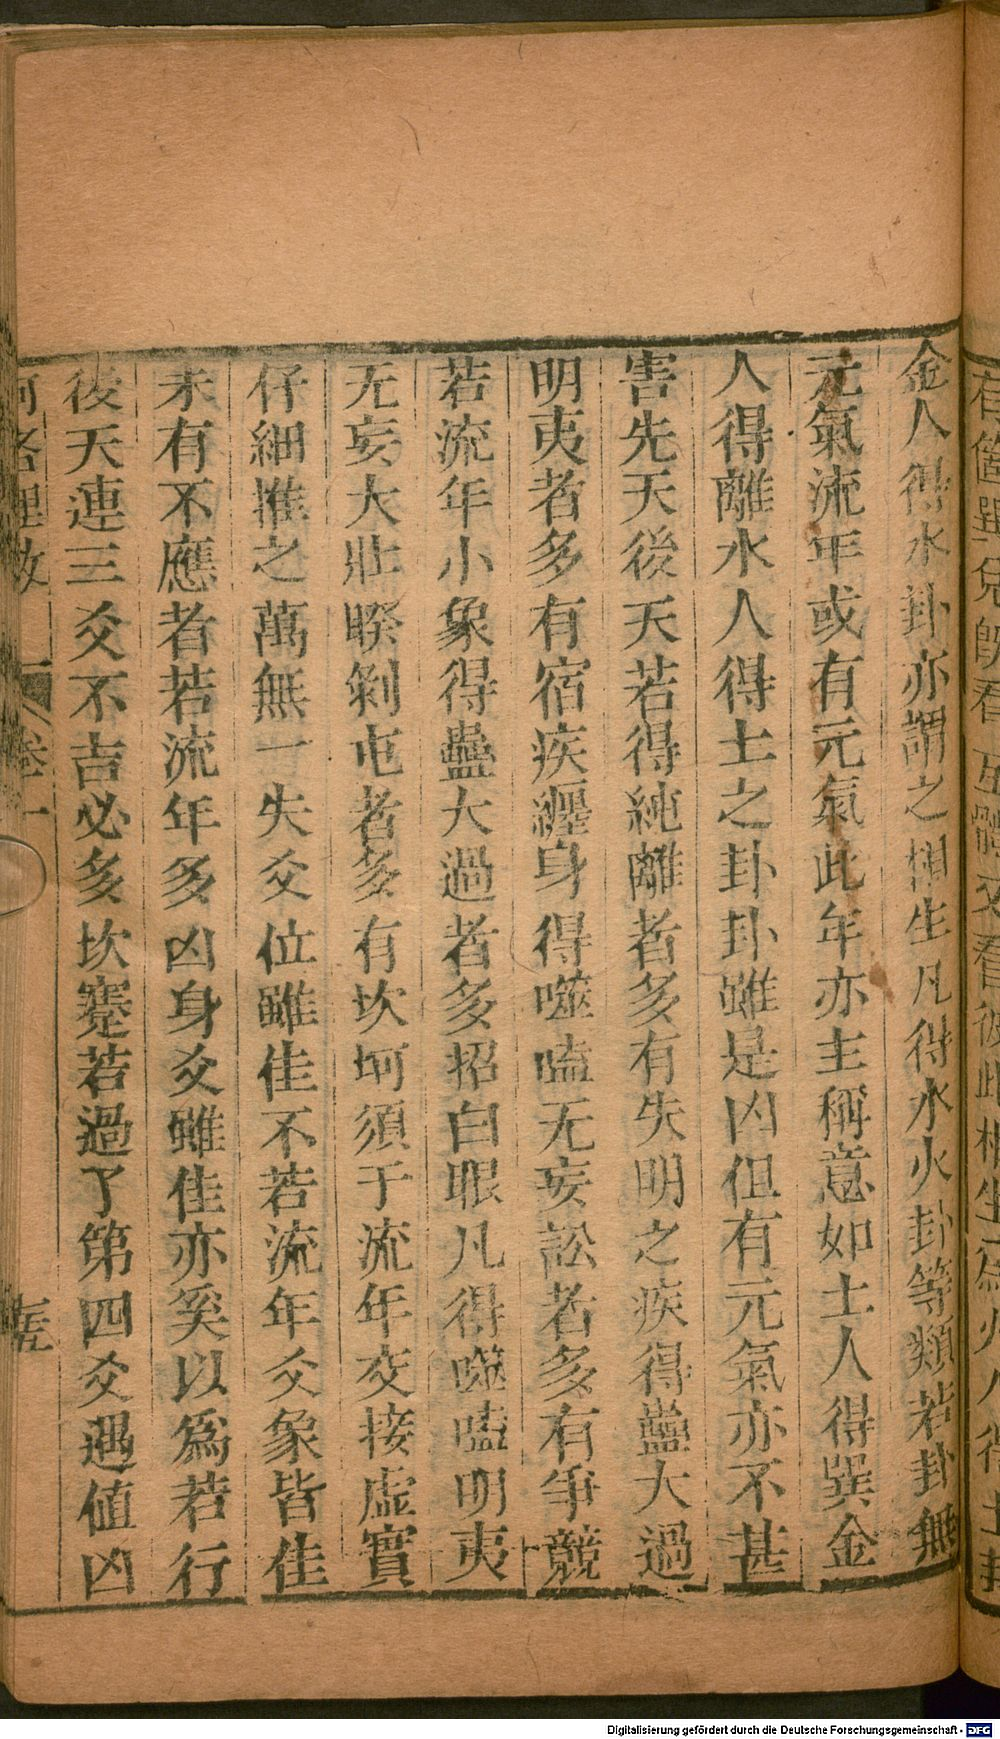 金人得水卦亦謂之相生凡得水火卦等類若卦無
元氣流年或有元氣此年亦主稱意如土人得巽金
人得離水人得土之卦卦雖是凶但有元氣亦不甚
害先天後天若得純離者多有失明之疾得蠱大過
明夷者多有宿疾纏身得噬嗑无妄訟者多有爭競
若流年小象得蠱大過者多招白眼凡得噬嗑明夷
无妄大壯睽剝屯者多有坎坷須于流年交接虛實
仔細推之萬無一失爻位雖佳不若流年爻象皆佳
未有不應者若流年多凶身爻雖佳亦奚以爲若行
後天連三爻不吉必多坎蹇若過了第四爻遇值凶
河洛理數 卷一 五
Digitalisierung gefördert durch die Deutsche Forschungsgemeinschaft - DFG